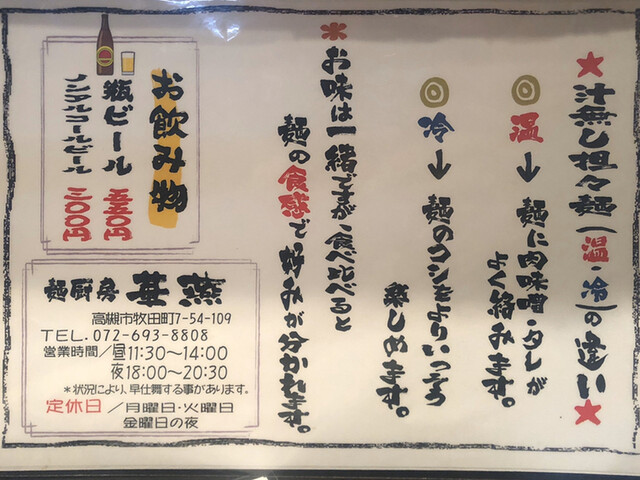 ★汁無し担々麺(温・冷)の違い★
◎温→麺に肉味噌・タレが
よく絡みます。
◎冷→麺のコシをよりいっそう
楽しめます。
※お味は一緒ですが食べ比べると
麺の食感で好みが分かれます。
お飲み物
瓶ビール
ノンアルコールビール 三〇〇円
麺厨房 華燕
高槻市牧田町7-54-109
TEL. 072-693-8808
営業時間/昼11:30〜14:00
夜18:00〜20:30
*状況により、早仕舞する事があります。
定休日/月曜日・火曜日
金曜日の夜